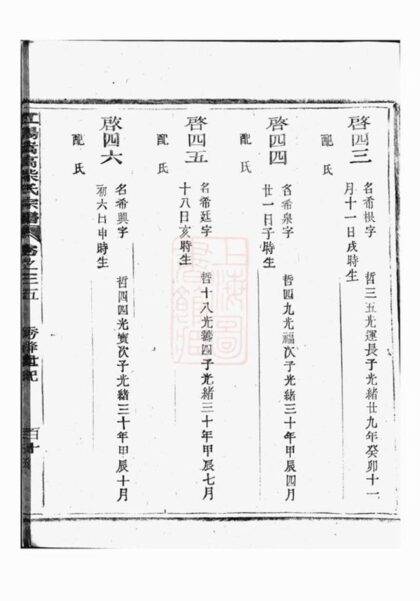 啓四三
名希根字
哲三五光運長子光緒廿九年癸卯十一
月十一日戌時生
配氏
啓四四
名希泉字
哲四九光福次子光緒三十年甲辰四月
廿一日子時生
配氏
啓四五
名希廷字
哲十八光壽四子光緒三十年甲辰七月
十八日亥時生
配氏
啟四六
名希興字
哲四四光實次子光緒三十年甲辰十月
初六日申時生
配氏
氏宗譜
卷之三五